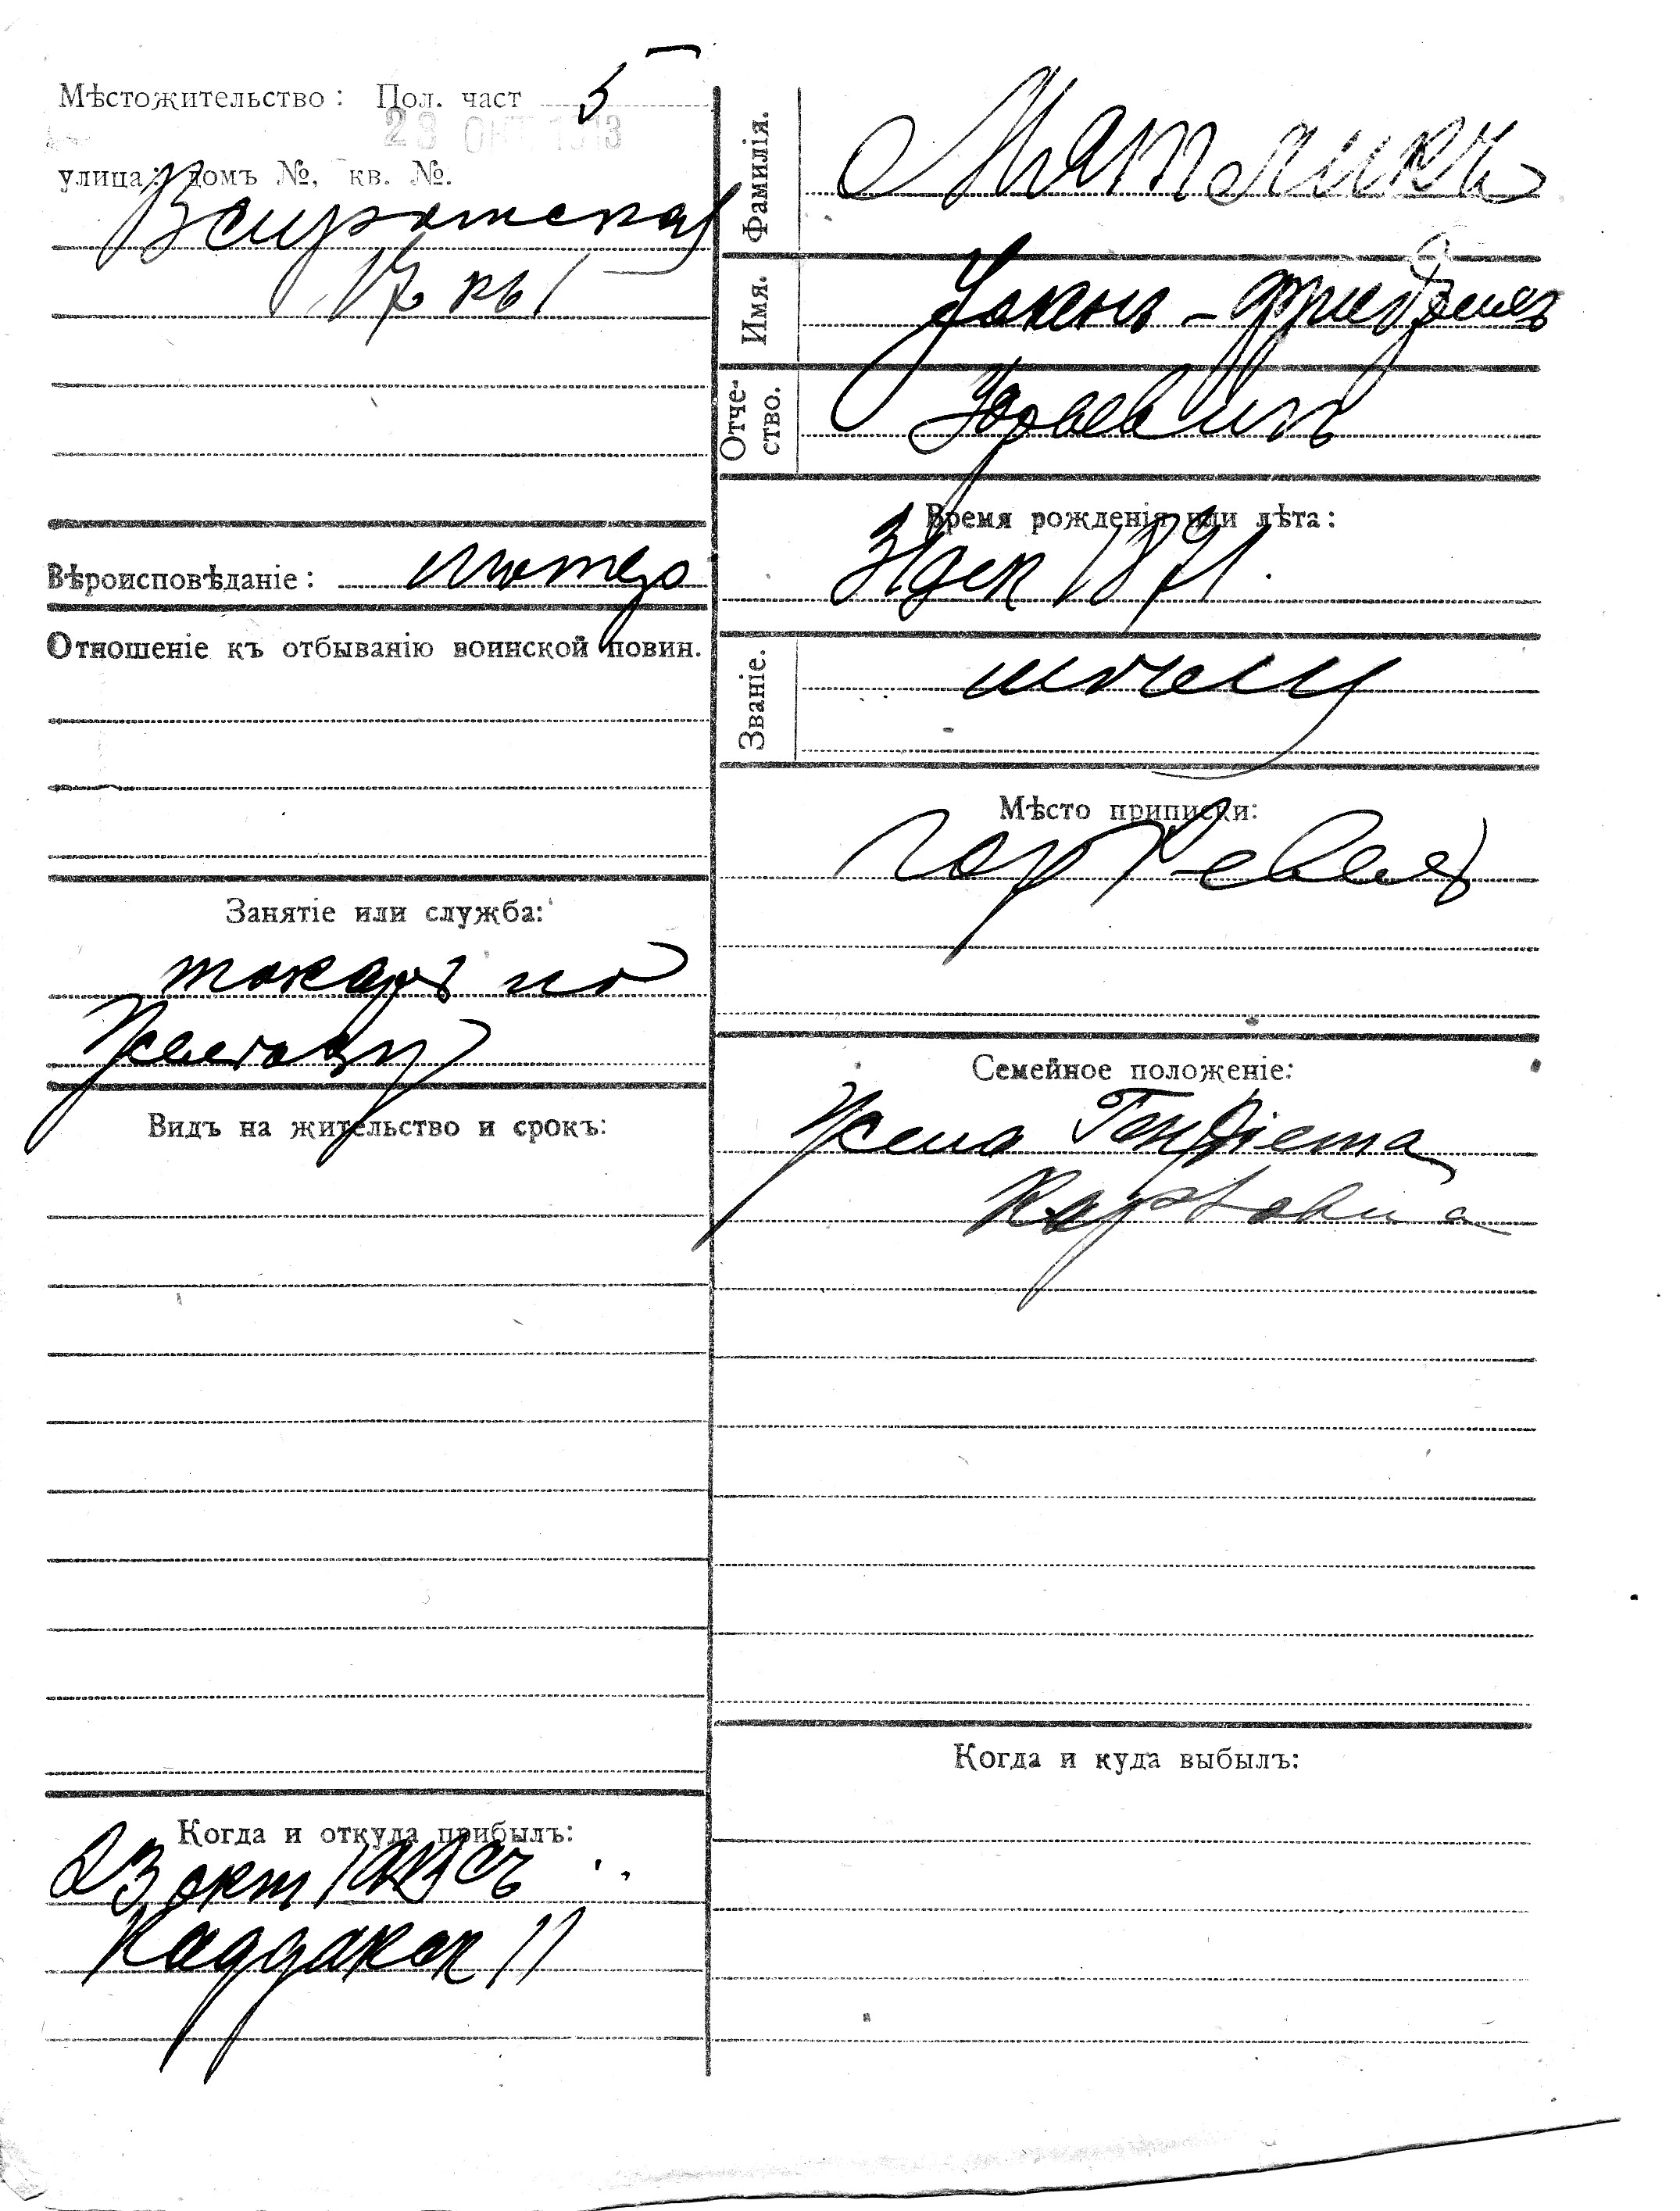 Мѣстожительство: Пол. част 5
23 ОКТ 1913
улица: домъ №, кв. №.
17 кв 1
Вѣроисповѣданіе:
Отношеніе къ отбыванію воинской повин.
Занятіе или служба:
токарь по
железу
Видъ на жительство и срокъ:
Когда и откуда прибылъ:
23 окт 1913 съ
11
Фамилія.
Имя.
Отчество.
Юрьевичъ
Время рожденія или лѣта:
31 дек 1871.
Званіе.
Мѣсто приписки:
гор Ревель
Семейное положеніе:
Жена Генріета
Карловна
Когда и куда выбылъ: